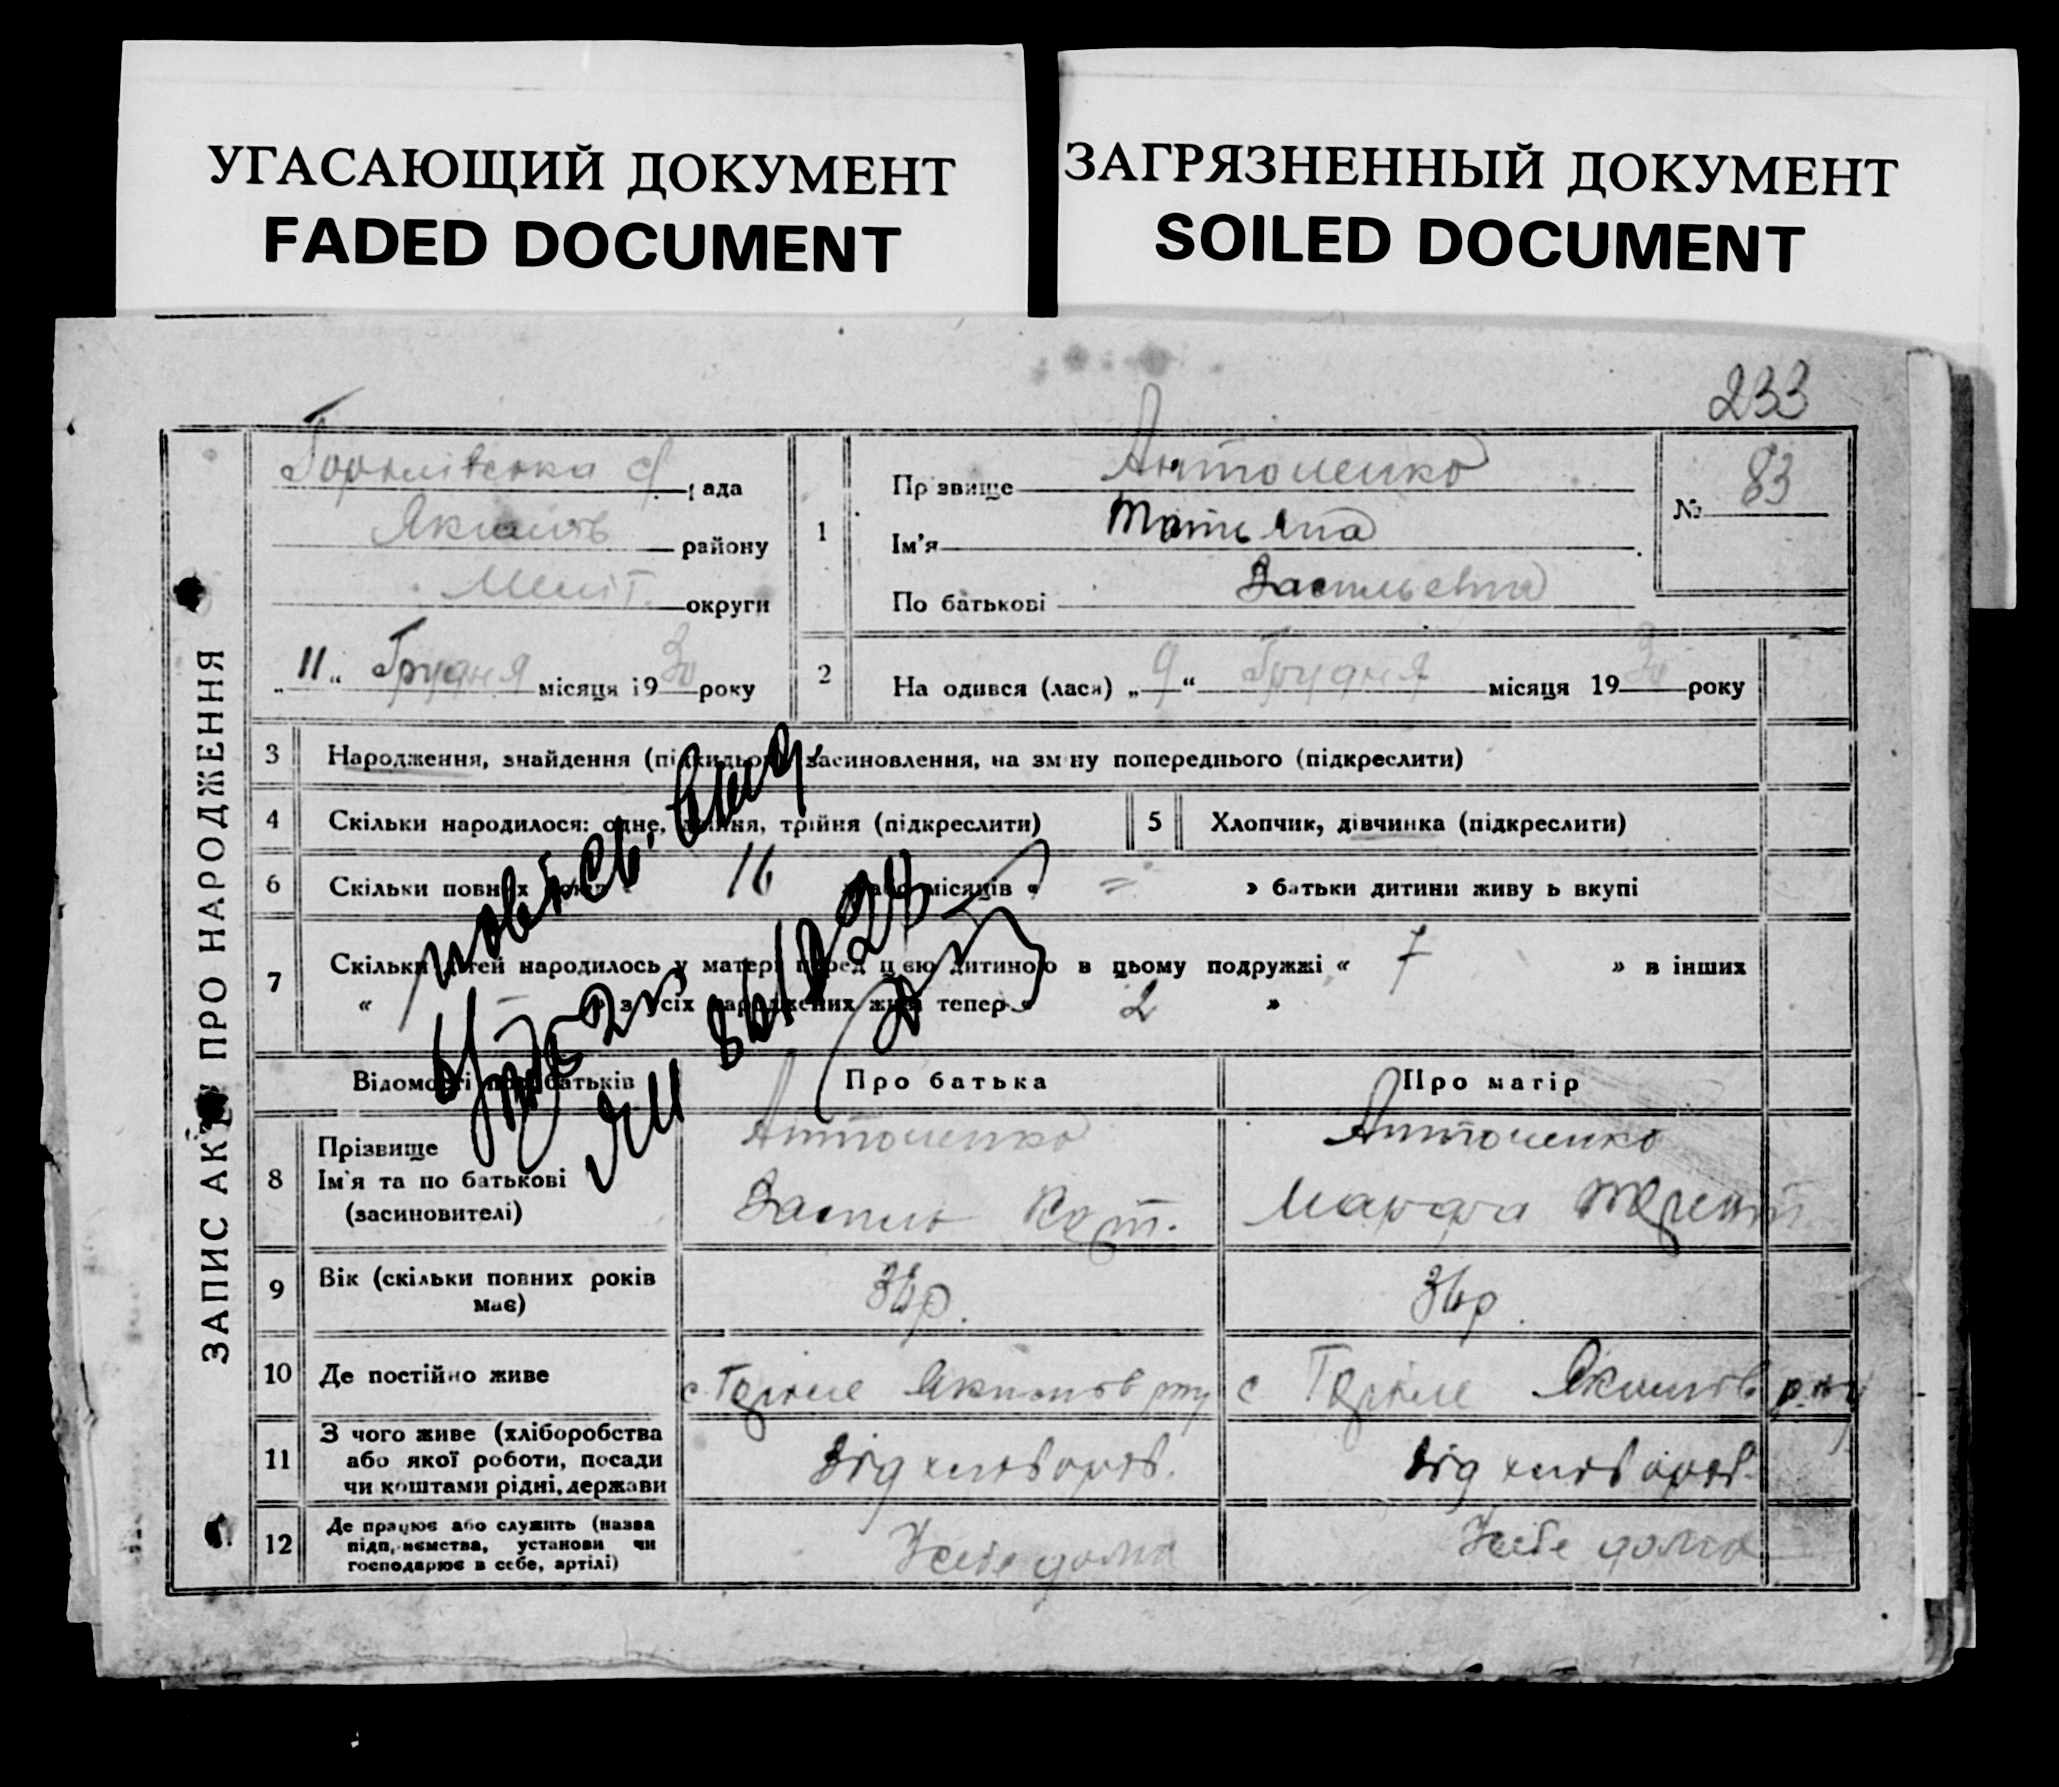 УГАСАЮЩИЙ ДОКУМЕНТ
FADED DOCUMENT
ЗАГРЯЗНЕННЫЙ ДОКУМЕНТ
SOILED DOCUMENT
233
ЗАПИС АКТУ ПРО НАРОДЖЕННЯ
рада
району
Меліт. округи
„11“ Грудня місяця 1930 року
1
Прізвище Антоненко
Ім'я Татьяна
По батькові Васильевна
№ 83
2
Народився (лася) „9“ Грудня місяця 1930 року
3 Народження, знайдення засиновлення, на зміну попереднього (підкреслити)
4 Скільки народилося: одне, двійня, трійня (підкреслити)
5 Хлопчик, дівчинка (підкреслити)
6 Скільки повних 16 або місяців « = » батьки дитини живуть вкупі
7 Скільки дітей народилось у матері перед цією дитиною в цьому подружжі « 7 » в інших
« – » з усіх народжених живі тепер « 2 »
Відомості про батьків
Про батька
Про матір
8 Прізвище
Ім'я та по батькові
(засиновителі)
Антоненко
Василь
Антоненко
Марфа
9 Вік (скільки повних років
має)
36р.
36р.
10 Де постійно живе
с.
с
11 З чого живе (хліборобства
або якої роботи, посади
чи коштами рідні, держави
від хлібороб.
від хлібороб.
12 Де працює або служить (назва
підприємства, установи чи
господарює в себе, артілі)
У себе дома
У себе дома